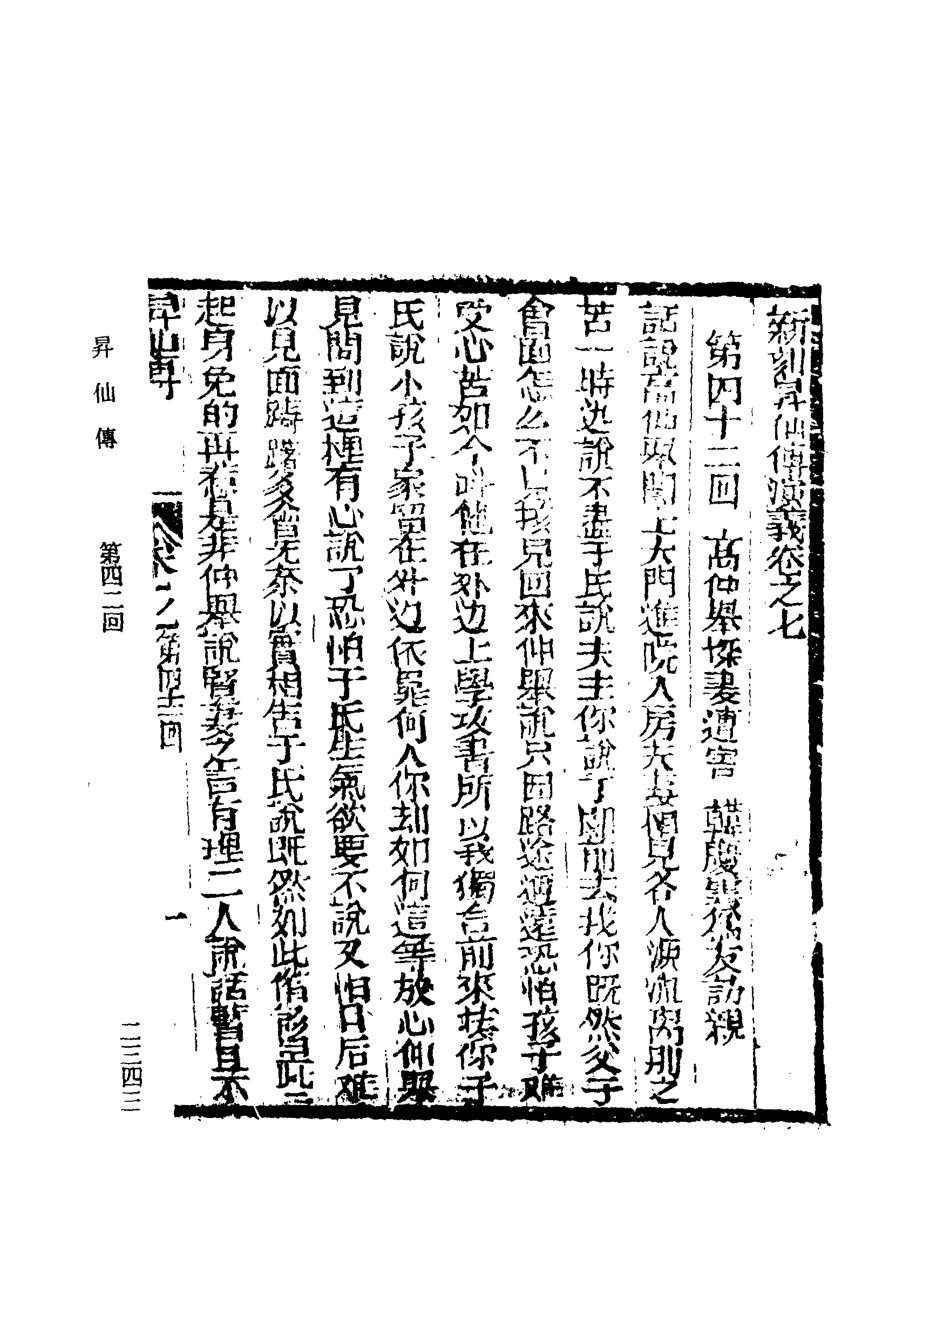 新刻昇仙傳演義卷之七
第四十二回 高仲舉探妻遭害 韓慶雲為友訪親
話說高仲舉關上大門進院入房夫妻相見各人源流離別之
苦一時边說不盡于氏說夫主你說了卽前去找你既然父子
會面怎么不与孩兒回來仲舉說只因路途遥遠恐怕孩子难
受心苦如今叫他在外边上學攻書所以我獨自前來找你于
氏說小孩子家留在外边依靠何人你却如何這等放心仲舉
見問到這裡有心說了恐怕于氏生氣欲要不說又怕日后难
以見面躊躇多會无奈以實相告于氏說既然如此偺们
起身免的再惹是非仲舉說賢妻之言有理二人說話暫且不
昇仙傳 卷之 第四十二回 一
昇仙傳 第四二回 二二四三